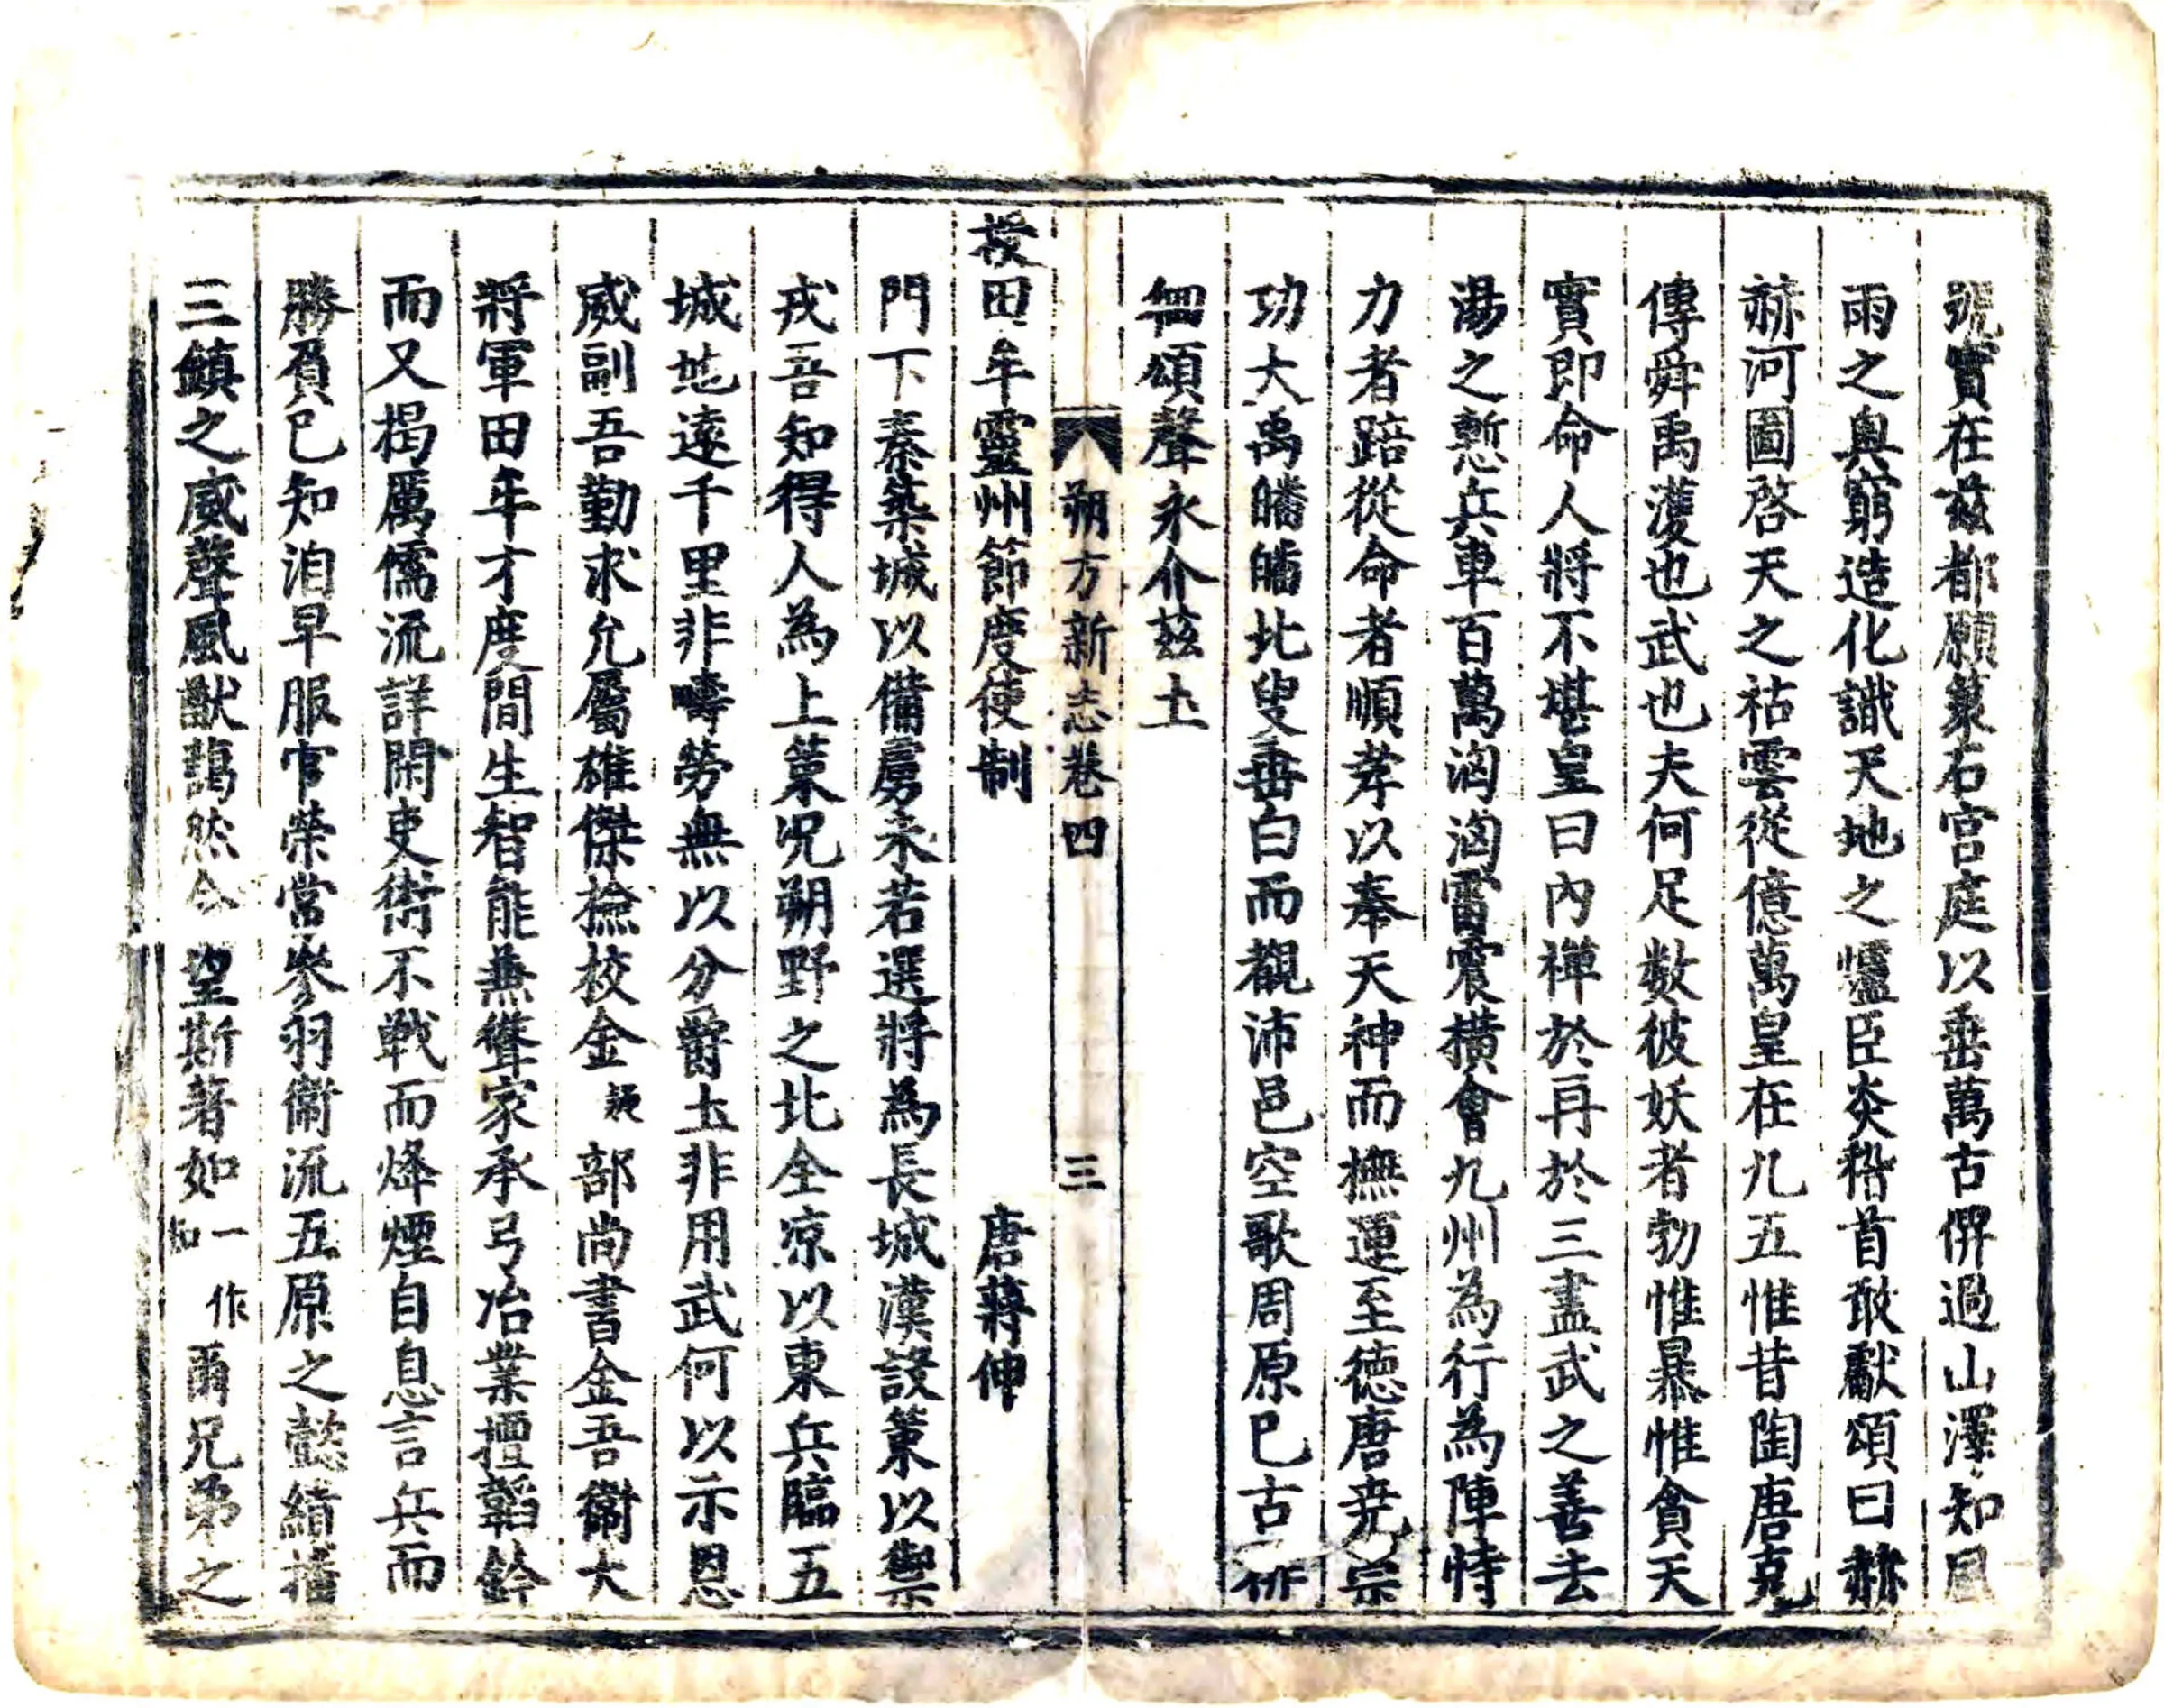 號實在茲都願篆石宮庭以垂萬古俾過山澤知風
雨之奧窮造化識天地之爐臣炎稽首敢獻頌曰赫
赫河圖啓天之祜雲從億萬皇在九五惟昔陶唐克
傳舜禹濩也武也夫何足数彼妖者勃惟暴惟貪天
實即命人將不堪皇曰內禅於再於三盡武之善去
湯之慙兵車百萬洶洶雷震横會九州為行為陣恃
力者踣從命者順孝以奉天神而撫運至德唐尭宗
功大禹皤皤北叟垂白而觀沛邑空歌周原已古作
頌聲永介兹土
朔方新志卷四 三
授田牟靈州節度使制 唐蒋伸
門下秦築城以備虜未若選將為長城漢設策以禦
戎吾知得人為上策况朔野之北全凉以東兵臨五
城地遠千里非疇勞無以分爵土非用武何以示恩
威副吾勤求允屬雄傑撿校金 疑 部尚書金吾衛大
將軍田牟才度間生智能兼聳家承弓冶業擅韜鈐
而又揭厲儒流詳閑吏術不戰而烽煙自息言兵而
勝負已知洎早服官榮常參羽衛流五原之懿績播
三鎮之威聲風猷藹然令望斯著如 一作知 爾兄弟之